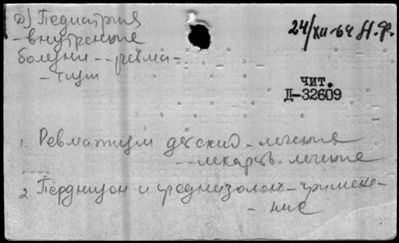 д) Педиатрия
24/XII-64 Н.Ф.
- внутренние
болезни - - ревма-
- тизм
ЧИТ.
Д-32609
1. Ревматизм детский - лечение
- - лекарств. лечение
2. Преднизон и преднизолон - примене-
- ние